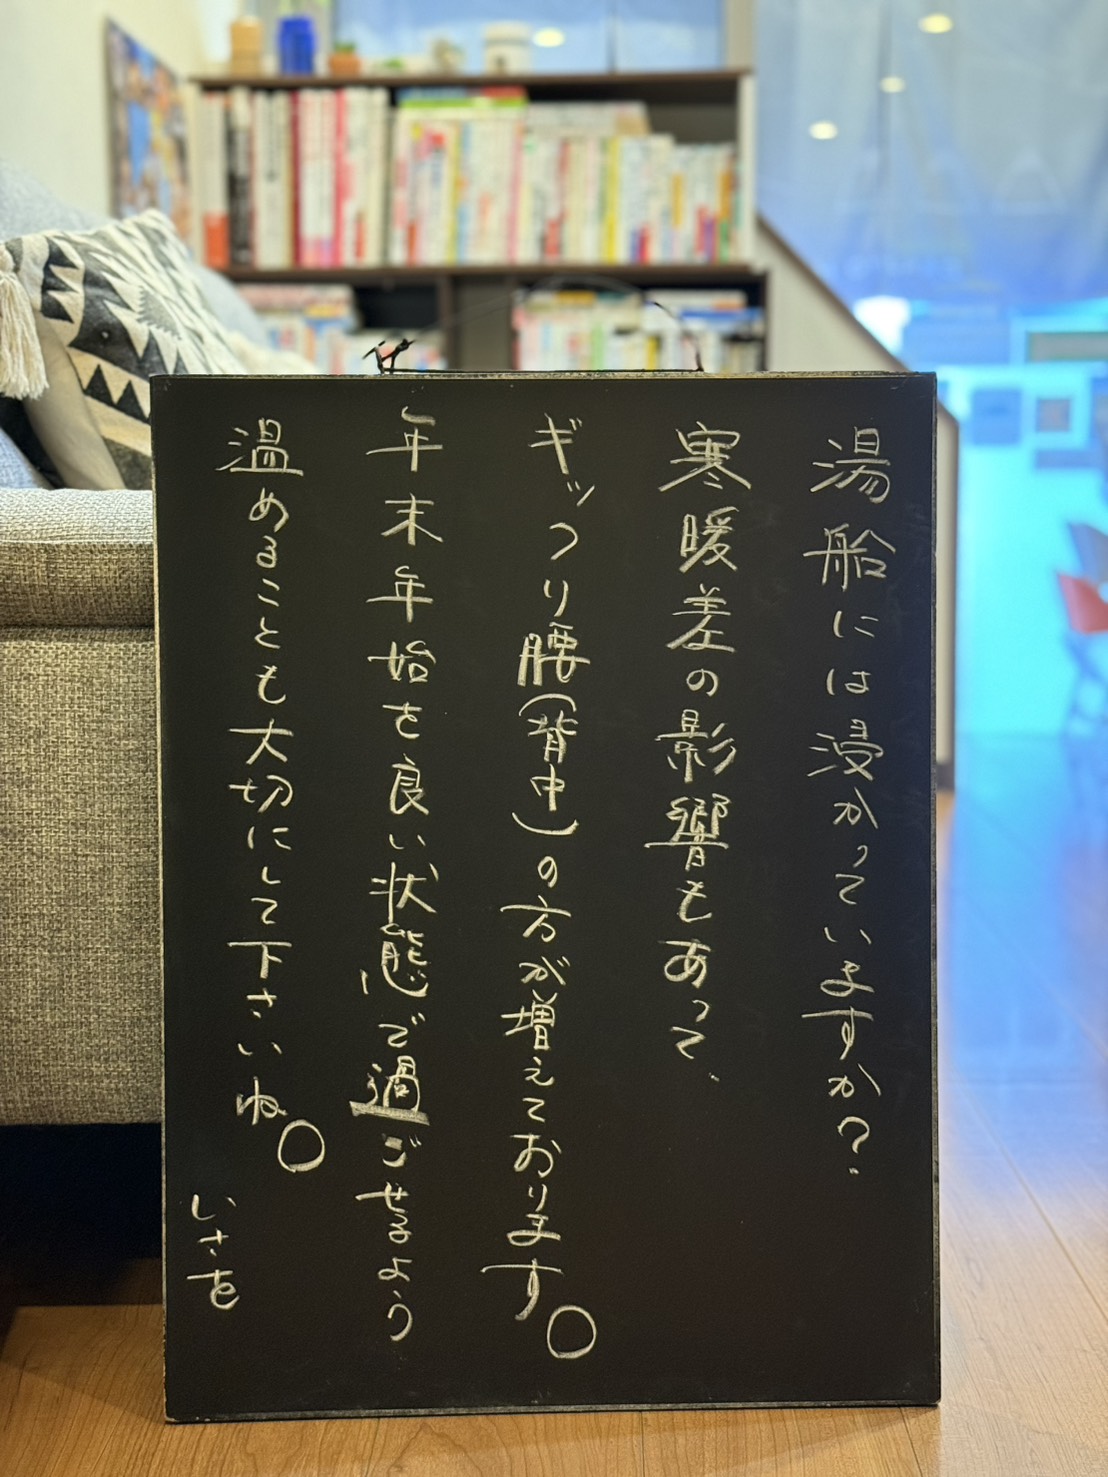 湯船には浸かっていますか?
寒暖差の影響もあって、
ギックリ腰(背中)の方が増えております。
年末年始を良い状態で過ごせるよう
温めることも大切にして下さいね。
いさを